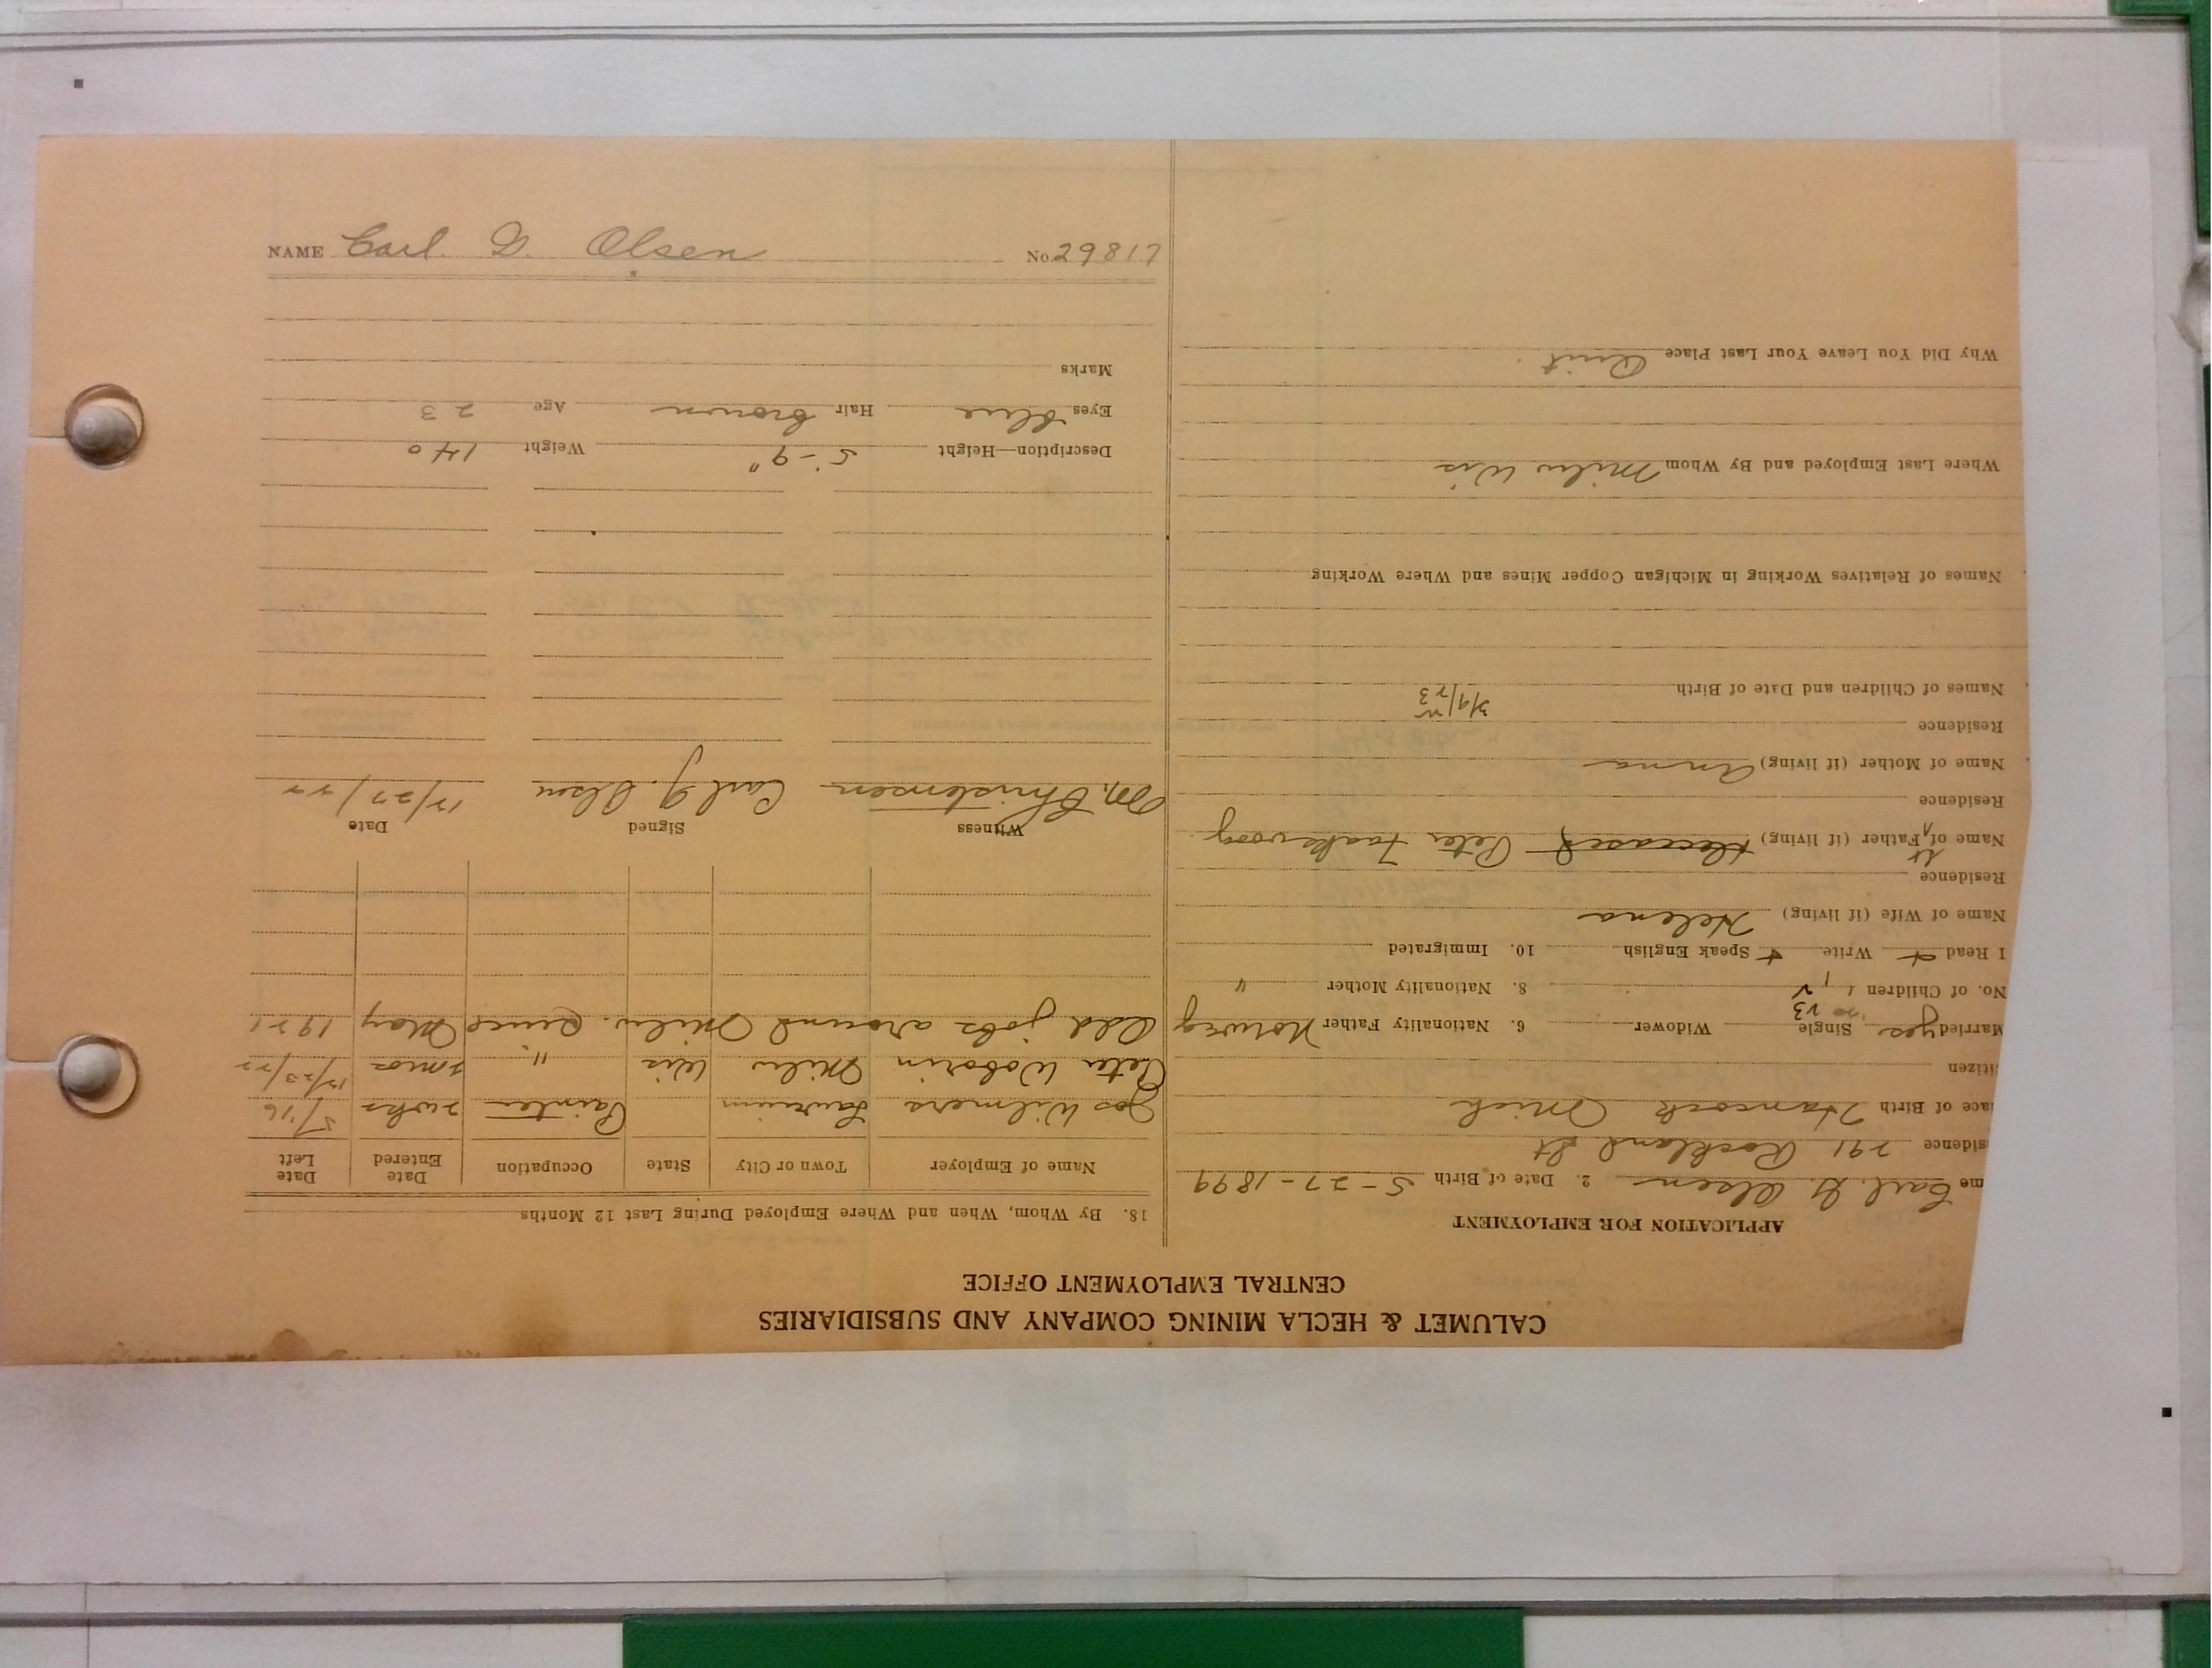 CALUMET & HECLA MINING COMPANY AND SUBSIDIARIES
CENTRAL EMPLOYMENT OFFICE
APPLICATION FOR EMPLOYMENT
me Carl. G. Olsen 2. Date of Birth 5-27-1899
sidence 291 Rockland St
ace of Birth Hancock Mich
itizen
Married yes Single Widower 6. Nationality Father Norway
No. of Children 1 8. Nationality Mother "
I Read Write Speak English 10. Immigrated
Name of Wife (if living) Helena
Residence
Name of St Father (if living) deceased Peter
Residence
Name of Mother (if living) Anna
Residence
Names of Children and Date of Birth
Names of Relatives Working in Michigan Copper Mines and Where Working
Where Last Employed and By Whom Milw Wis
Why Did You Leave Your Last Place Quit
18. By Whom, When and Where Employed During Last 12 Months
Name of Employer Town or City State Occupation Date Entered Date Left
Jos Wilmers Laurium Painter 2 wks 5/16
Peter Woborin Milw Wis " 12/23/22
Odd jobs around Milw. Since May 1921
Witness Signed Date
M. Christensen Carl G. Olsen 12/27/22
Description—Height 5'-9" Weight 140
Eyes blue Hair brown Age 23
Marks
NAME Carl. G. Olsen No. 29817